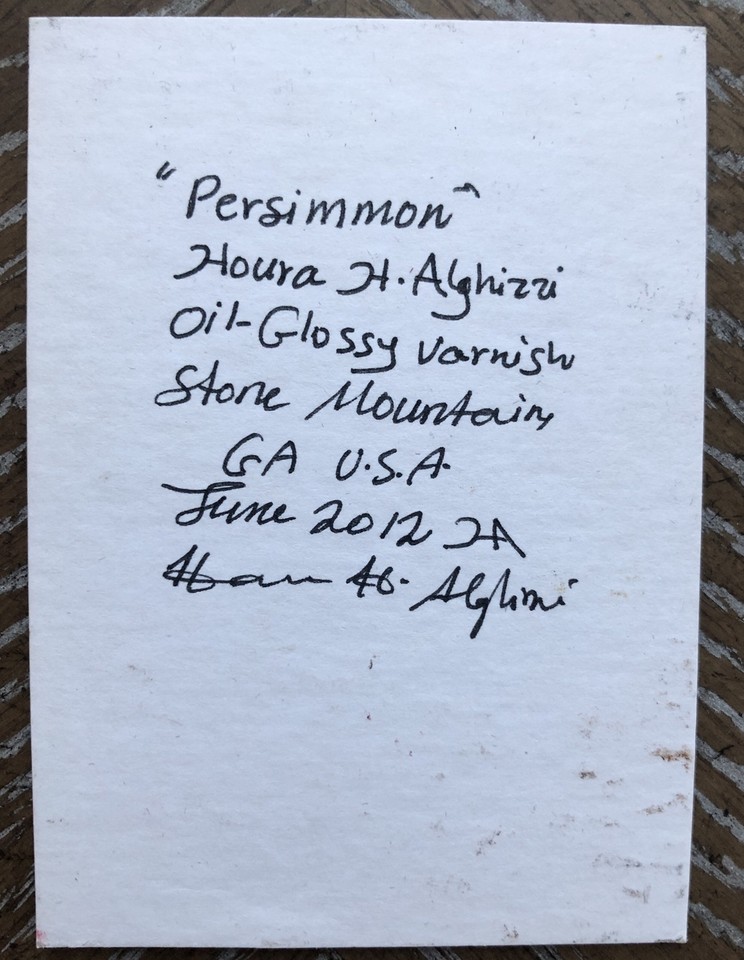 "Persimmon"
Houra H. Alghizzi
Oil-Glossy Varnish
Stone Mountain,
GA U.S.A.
June 2012 HA
H. Alghizzi